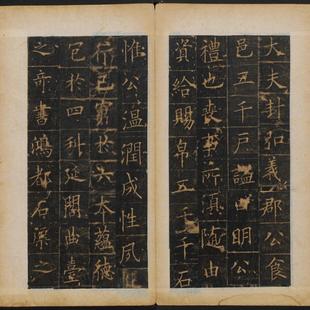 大夫封弘義郡公食
邑五千戶諡曰明公
禮也喪事所湏隨由
資給賜帛五千千石
惟公溫潤成性夙
行己窮於六本蘊德
包於四科延閣曲臺
之奇書鴻都石渠之